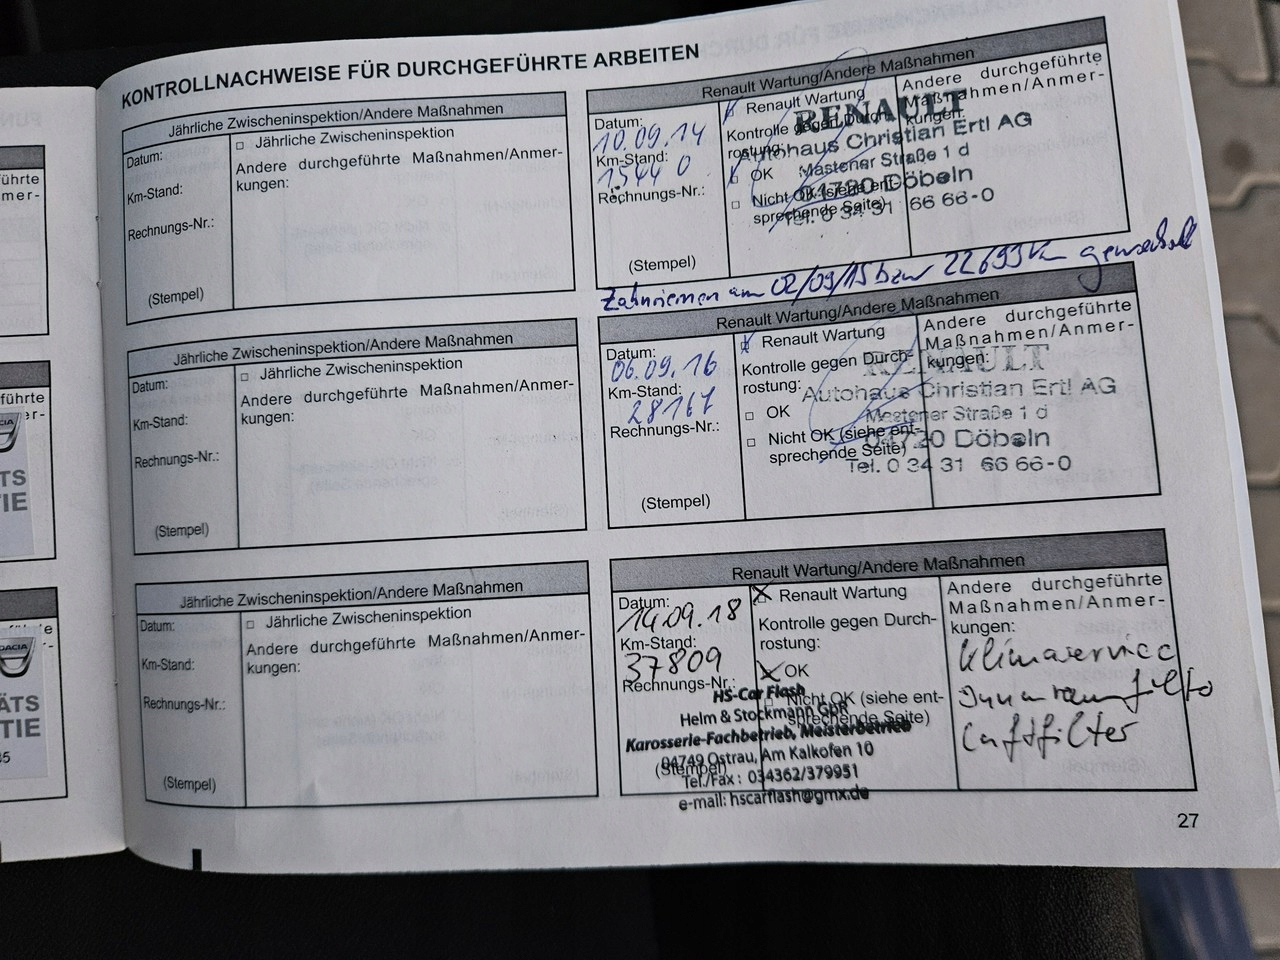 KONTROLLNACHWEISE FÜR DURCHGEFÜHRTE ARBEITEN
Jährliche Zwischeninspektion/Andere Maßnahmen
Datum:
Km-Stand:
Rechnungs-Nr.:
(Stempel)
□ Jährliche Zwischeninspektion
Andere durchgeführte Maßnahmen/Anmer-
kungen:
Jährliche Zwischeninspektion/Andere Maßnahmen
Datum:
Km-Stand:
Rechnungs-Nr.:
(Stempel)
□ Jährliche Zwischeninspektion
Andere durchgeführte Maßnahmen/Anmer-
kungen:
Jährliche Zwischeninspektion/Andere Maßnahmen
Datum:
Km-Stand:
Rechnungs-Nr.:
(Stempel)
□ Jährliche Zwischeninspektion
Andere durchgeführte Maßnahmen/Anmer-
kungen:
Renault Wartung/Andere Maßnahmen
Datum:
10.09.14
Km-Stand:
15440
Rechnungs-Nr.:
(Stempel)
Renault Wartung
Kontrolle gegen Durch-
rostung:
□ OK
□ Nicht OK (siehe ent-
sprechende Seite)
Andere durchgeführte
Maßnahmen/Anmer-
kungen:
RENAULT
Autohaus Christian Ertl AG
Mastener Straße 1 d
04720 Döbeln
Tel. 0 34 31 66 66-0
Zahnriemen am 02/09/15 bzw 22699 Km gewechselt
Renault Wartung/Andere Maßnahmen
Datum:
06.09.16
Km-Stand:
28167
Rechnungs-Nr.:
(Stempel)
Renault Wartung
Kontrolle gegen Durch-
rostung:
□ OK
□ Nicht OK (siehe ent-
sprechende Seite)
Andere durchgeführte
Maßnahmen/Anmer-
kungen:
RENAULT
Autohaus Christian Ertl AG
Mastener Straße 1 d
04720 Döbeln
Tel. 0 34 31 66 66-0
Renault Wartung/Andere Maßnahmen
Datum:
14.09.18
Km-Stand:
37809
Rechnungs-Nr.:
(Stempel)
Renault Wartung
Kontrolle gegen Durch-
rostung:
OK
Nicht OK (siehe ent-
sprechende Seite)
HS-Car Flash
Helm & Stockmann GbR
Karosserie-Fachbetrieb, Meisterbetrieb
04749 Ostrau, Am Kalkofen 10
Tel./Fax: 034362/379951
e-mail: hscarflash@gmx.de
Andere durchgeführte
Maßnahmen/Anmer-
kungen:
Klimaservice
Innenraumfilter
Luftfilter
27